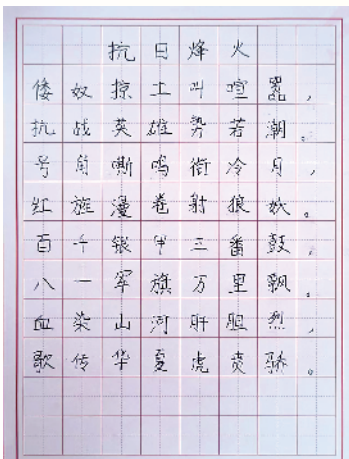 抗日烽火
倭奴掠土叫喧嚣，
抗战英雄势若潮。
号角嘶鸣衔冷月，
红旌漫卷射狼妖。
百千银甲三番鼓，
八一军旗万里飘。
血染山河肝胆烈，
歌传华夏虎贲骄。